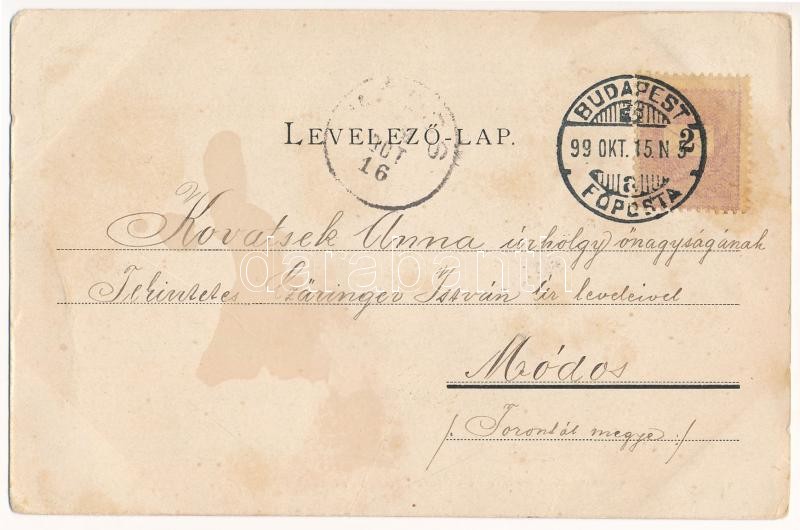 BUDAPEST
99 OKT. 15. N 5
2
FŐPOSTA
LEVELEZŐ-LAP.
OCT
16
Kovatsek Anna úrhölgy őnagyságának
Tekintetes Czäringer István úr leveleivel
Módos
/: Torontál megye :/
darabanth